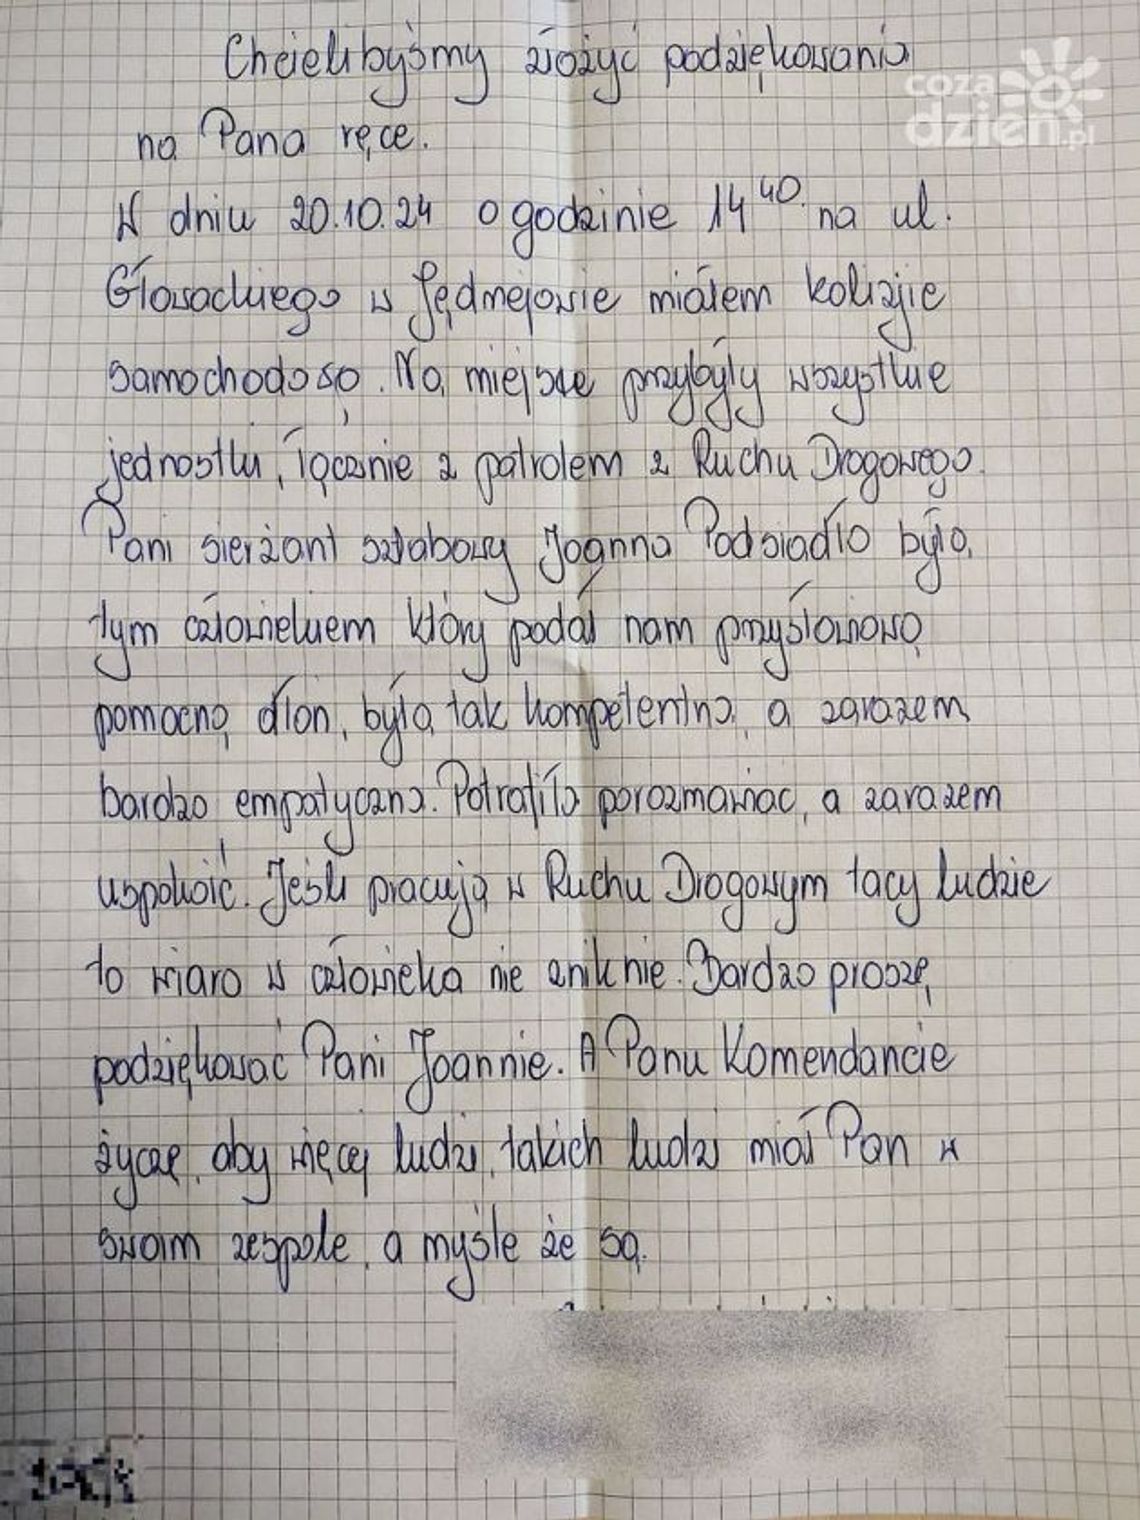 Chcielibyśmy złożyć podziękowania
coza
dzien.pl
na Pana ręce.
W dniu 20.10.24 o godzinie 14⁴⁰ na ul.
Głowackiego w Jędrzejowie miałem kolizję
samochodową. Na miejsce przybyły wszystkie
jednostki, łącznie z patrolem z Ruchu Drogowego.
Pani sierżant sztabowy Joanna Podsiadło była
tym człowiekiem który podał nam przysłowiową
pomocną dłoń, była tak kompetentna, a zarazem
bardzo empatyczna. Potrafiła porozmawiac, a zarazem
uspokoić. Jeśli pracują w Ruchu Drogowym tacy ludzie
to wiara w człowieka nie zniknie. Bardzo proszę
podziękować Pani Joannie. A Panu Komendancie
życzę, aby więcej ludzi, takich ludzi miał Pan w
swoim zespole, a myśle że są.